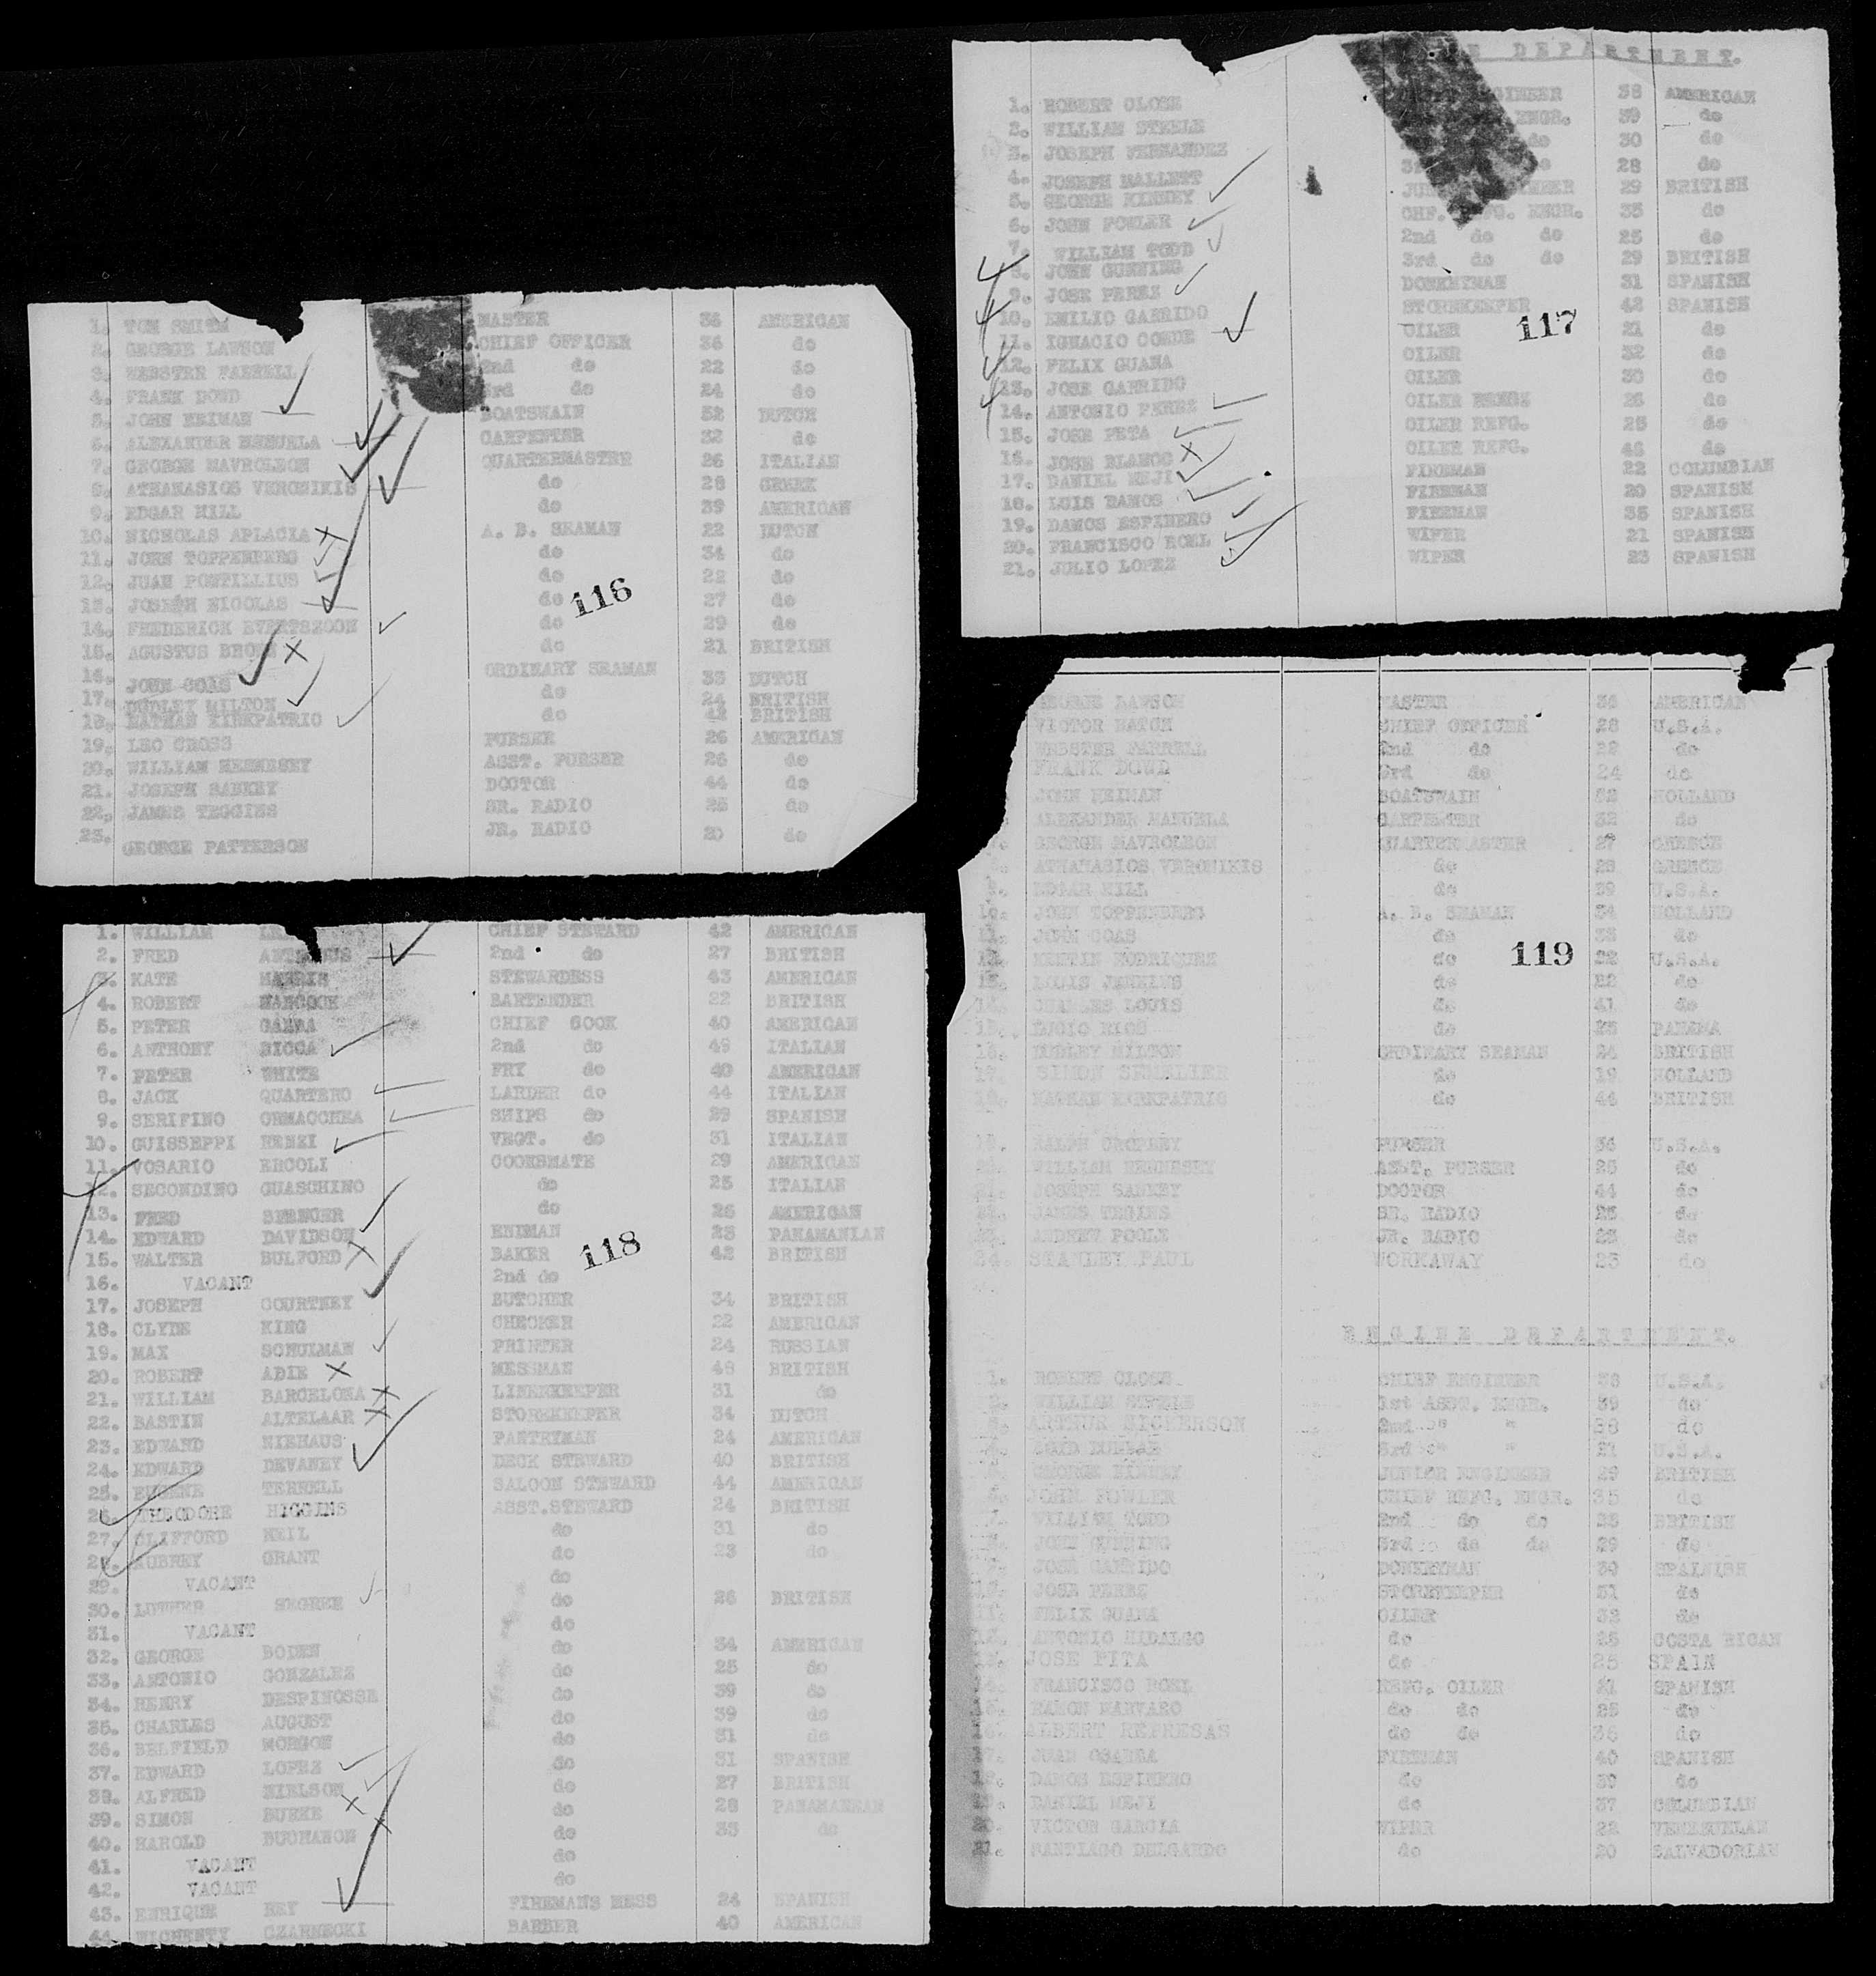 1. TOM SMITH MASTER 38 AMERICAN
2. GEORGE LAWSON CHIEF OFFICER 36 do
3. WEBSTER FARRELL 2nd do 22 do
4. FRANK DOWD 3rd do 24 do
5. JOHN HEIMAN BOATSWAIN 32 DUTCH
6. ALEXANDER MANUELA CARPENTER 32 do
7. GEORGE MAVROLEON QUARTERMASTER 26 ITALIAN
8. ATHANASIOS VERONIKIS do 28 GREEK
9. EDGAR HILL do 39 AMERICAN
10. NICHOLAS APLACIA A. B. SEAMAN 22 DUTCH
11. JOHN TOPPENBERG do 34 do
12. JUAN PONTILLIUS do 22 do
13. JOSEPH NICOLAS do 27 do
116
14. FREDERICK EVERTSZOON do 29 do
15. AGUSTUS BROWN do 21 BRITISH
16. JOHN COAS ORDINARY SEAMAN 33 DUTCH
17. DUDLEY MILTON do 24 BRITISH
18. NATHAN KIRKPATRIC do 42 BRITISH
19. LEO CROSS PURSER 26 AMERICAN
20. WILLIAM HENNESEY ASST. PURSER 26 do
21. JOSEPH SANKEY DOCTOR 44 do
22. JAMES TEGGINS SR. RADIO 25 do
23. GEORGE PATTERSON JR. RADIO 20 do
DEPARTMENT.
1. ROBERT CLOSE ENGINEER 38 AMERICAN
2. WILLIAM STEELE ENGR. 39 do
3. JOSEPH FERNANDEZ do 30 do
4. JOSEPH MALLETT 28 do
5. GEORGE KINNEY 29 BRITISH
6. JOHN FOWLER CHF. ENGR. 35 do
7. WILLIAM TODD 2nd do do 25 do
8. JOHN GUNNING 3rd do do 29 BRITISH
9. JOSE PEREZ DONKEYMAN 31 SPANISH
10. EMILIO GARRIDO STOREKEEPER 42 SPANISH
117
11. IGNACIO CONDE OILER 21 do
12. FELIX GUANA OILER 32 do
13. JOSE GARRIDO OILER 30 do
14. ANTONIO PEREZ OILER 26 do
15. JOSE PETA OILER REFG. 25 do
16. JOSE BLANCO OILER REFG. 46 do
17. DANIEL MEJI FIREMAN 22 COLUMBIAN
18. LUIS RAMOS FIREMAN 20 SPANISH
19. DAMOS ESPINERO FIREMAN 35 SPANISH
20. FRANCISCO ROEL WIPER 21 SPANISH
21. JULIO LOPEZ WIPER 23 SPANISH
1. WILLIAM CHIEF STEWARD 42 AMERICAN
2. FRED 2nd do 27 BRITISH
3. KATE HARRIS STEWARDESS 43 AMERICAN
4. ROBERT HANCOCK BARTENDER 22 BRITISH
5. PETER CHIEF COOK 40 AMERICAN
6. ANTHONY SICCA 2nd do 49 ITALIAN
7. PETER WHITE FRY do 40 AMERICAN
8. JACK QUARTERO LARDER do 44 ITALIAN
9. SERIFINO ORMACCHEA SHIPS do 29 SPANISH
10. GUISSEPPI RENZI VEGT. do 31 ITALIAN
11. VOSARIO ERCOLI COOKSMATE 29 AMERICAN
12. SECONDINO GUASCHINO do 25 ITALIAN
13. FRED SPENCER do 26 AMERICAN
14. EDWARD DAVIDSON 23 PANAMANIAN
15. WALTER BULFORD BAKER 42 BRITISH
118
16. VACANT 2nd do
17. JOSEPH COURTNEY BUTCHER 34 BRITISH
18. CLYDE KING CHECKER 22 AMERICAN
19. MAX SCHULMAN PRINTER 24 RUSSIAN
20. ROBERT ADIE MESSMAN 48 BRITISH
21. WILLIAM BARCELONA LINENKEEPER 31 do
22. BASTIN ALTELAAR STOREKEEPER 34 DUTCH
23. EDWARD NIEHAUS PANTRYMAN 24 AMERICAN
24. EDWARD DEVANEY DECK STEWARD 40 BRITISH
25. EUGENE TERRELL SALOON STEWARD 44 AMERICAN
26. THEODORE HIGGINS ASST.STEWARD 24 BRITISH
27. CLIFFORD NEIL do 31 do
28. AUBREY GRANT do 23 do
29. VACANT do
30. LUTHER SEGREE do 26 BRITISH
31. VACANT do
32. GEORGE BODEN do 34 AMERICAN
33. ANTONIO GONZALEZ do 25 do
34. HENRY DESPINOSSE do 39 do
35. CHARLES AUGUST do 39 do
36. BELFIELD MORGON do 31 do
37. EDWARD LOPEZ do 31 SPANISH
38. ALFRED NIELSON do 27 BRITISH
39. SIMON BURKE do 28 PANAMANIAN
40. HAROLD BUCHANON do 33 do
41. VACANT do
42. VACANT do
43. ENRIQUE REY FIREMANS MESS 24 SPANISH
44. CZARNECKI BARBER 40 AMERICAN
GEORGE LAWSON MASTER 36 AMERICAN
VICTOR HATCH CHIEF OFFICER 28 U.S.A.
WEBSTER FARRELL 2nd do 22 do
FRANK DOWD 3rd do 24 do
JOHN HEIMAN BOATSWAIN 32 HOLLAND
ALEXANDER MANUELA CARPENTER 32 do
GEORGE MAVROLEON QUARTERMASTER 27 GREECE
ATHANASIOS VERONIKIS do 28 GREECE
9. EDGAR HILL do 39 U.S.A.
10. JOHN TOPPENBERG A. B. SEAMAN 34 HOLLAND
11. JOHN COAS do 33 do
119
12. RODRIQUEZ do 32 U.S.A.
13. LOUIS JENKINS do 22 do
14. CHARLES LOUIS do 41 do
15. LUCIO RIOS do 25 PANAMA
16. DUDLEY MILTON ORDINARY SEAMAN 24 BRITISH
17. SIMON SEMELIER do 19 HOLLAND
18. NATHAN KIRKPATRIC do 44 BRITISH
19. RALPH CROPLEY PURSER 36 U.S.A.
20. WILLIAM HENNESEY ASST. PURSER 25 do
21. JOSEPH SANKEY DOCTOR 44 do
22. JAMES TEGINS SR. RADIO 25 do
23. ANDREW POOLE JR. RADIO 23 do
24. STANLEY PAUL WORKAWAY 23 do
ENGINE DEPARTMENT.
1. ROBERT CLOSE CHIEF ENGINEER 38 U.S.A.
2. WILLIAM STEELE 1st ASST. ENGR. 39 do
3. ARTHUR SICKERSON 2nd " " 38 do
4. LOYD DUNBAR 3rd " " 31 U.S.A.
5. GEORGE KINNEY JUNIOR ENGINEER 29 BRITISH
6. JOHN FOWLER CHIEF REFG. ENGR. 35 do
7. WILLIAM TODD 2nd do do 25 BRITISH
8. JOHN GUNNING 3rd do do 29 do
9. JOSE GARRIDO DONKEYMAN 30 SPAINISH
10. JOSE PEREZ STOREKEEPER 31 do
11. FELIX GUANA OILER 32 do
12. ANTONIO HIDALGO do 25 COSTA RICAN
13. JOSE PITA do 25 SPAIN
14. FRANCISCO ROEL REFG. OILER 21 SPANISH
15. RAMON NARVARO do do 25 do
16. ALBERT REPRESAS do do 36 do
17. JUAN FIREMAN 40 SPANISH
18. DAMOS ESPINERO do 39 do
19. DANIEL MEJI do 37 COLUMBIAN
20. VICTOR GARCIA WIPER 22 VENEZUELAN
21. SANTIAGO DELGARDO do 20 SALVADORIAN